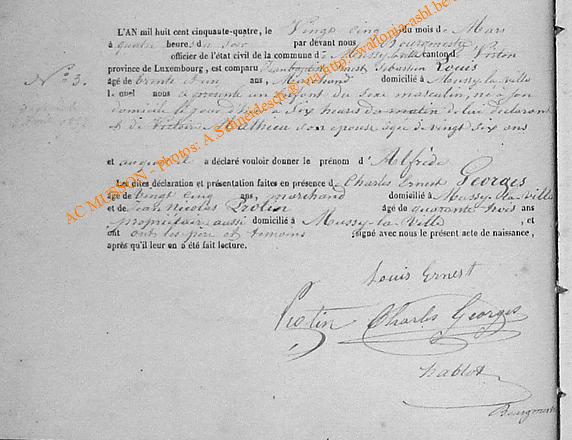 L'AN mil huit cent cinquante-quatre, le Vingt Cinq du mois de Mars
à quatre heures du soir par devant nous Bourgmestre
officier de l'état civil de la commune de Mussy la ville canton de Virton
N° 3.
province de Luxembourg, est comparu Ernest Sébastien Louis
âgé de trente et un ans, Marchand domicilié à Mussy-la-ville
lequel nous a présenté un enfant du sexe masculin né à son
domicile à six heures du matin de lui déclarant
et de Victoire Mathieu son épouse âgée de vingt six ans
et auquel il a déclaré vouloir donner le prénom d'Alfrède
Les dites déclaration et présentation faites en présence de Charles Ernest Georges
âgé de vingt cinq ans, marchand domicilié à Mussy-la-Ville
et de Jean Nicolas Protin âgé de quarante trois ans
propriétaire aussi domicilié à Mussy-la-Ville, et
ont les père et témoins signé avec nous le présent acte de naissance,
après qu'il leur en a été fait lecture.
Louis Ernest
Protin Charles Georges
Hablot
Bourgmestre
AC MUSSON - Photos: A Schneidesch @ via http://wallonia-asbl.be